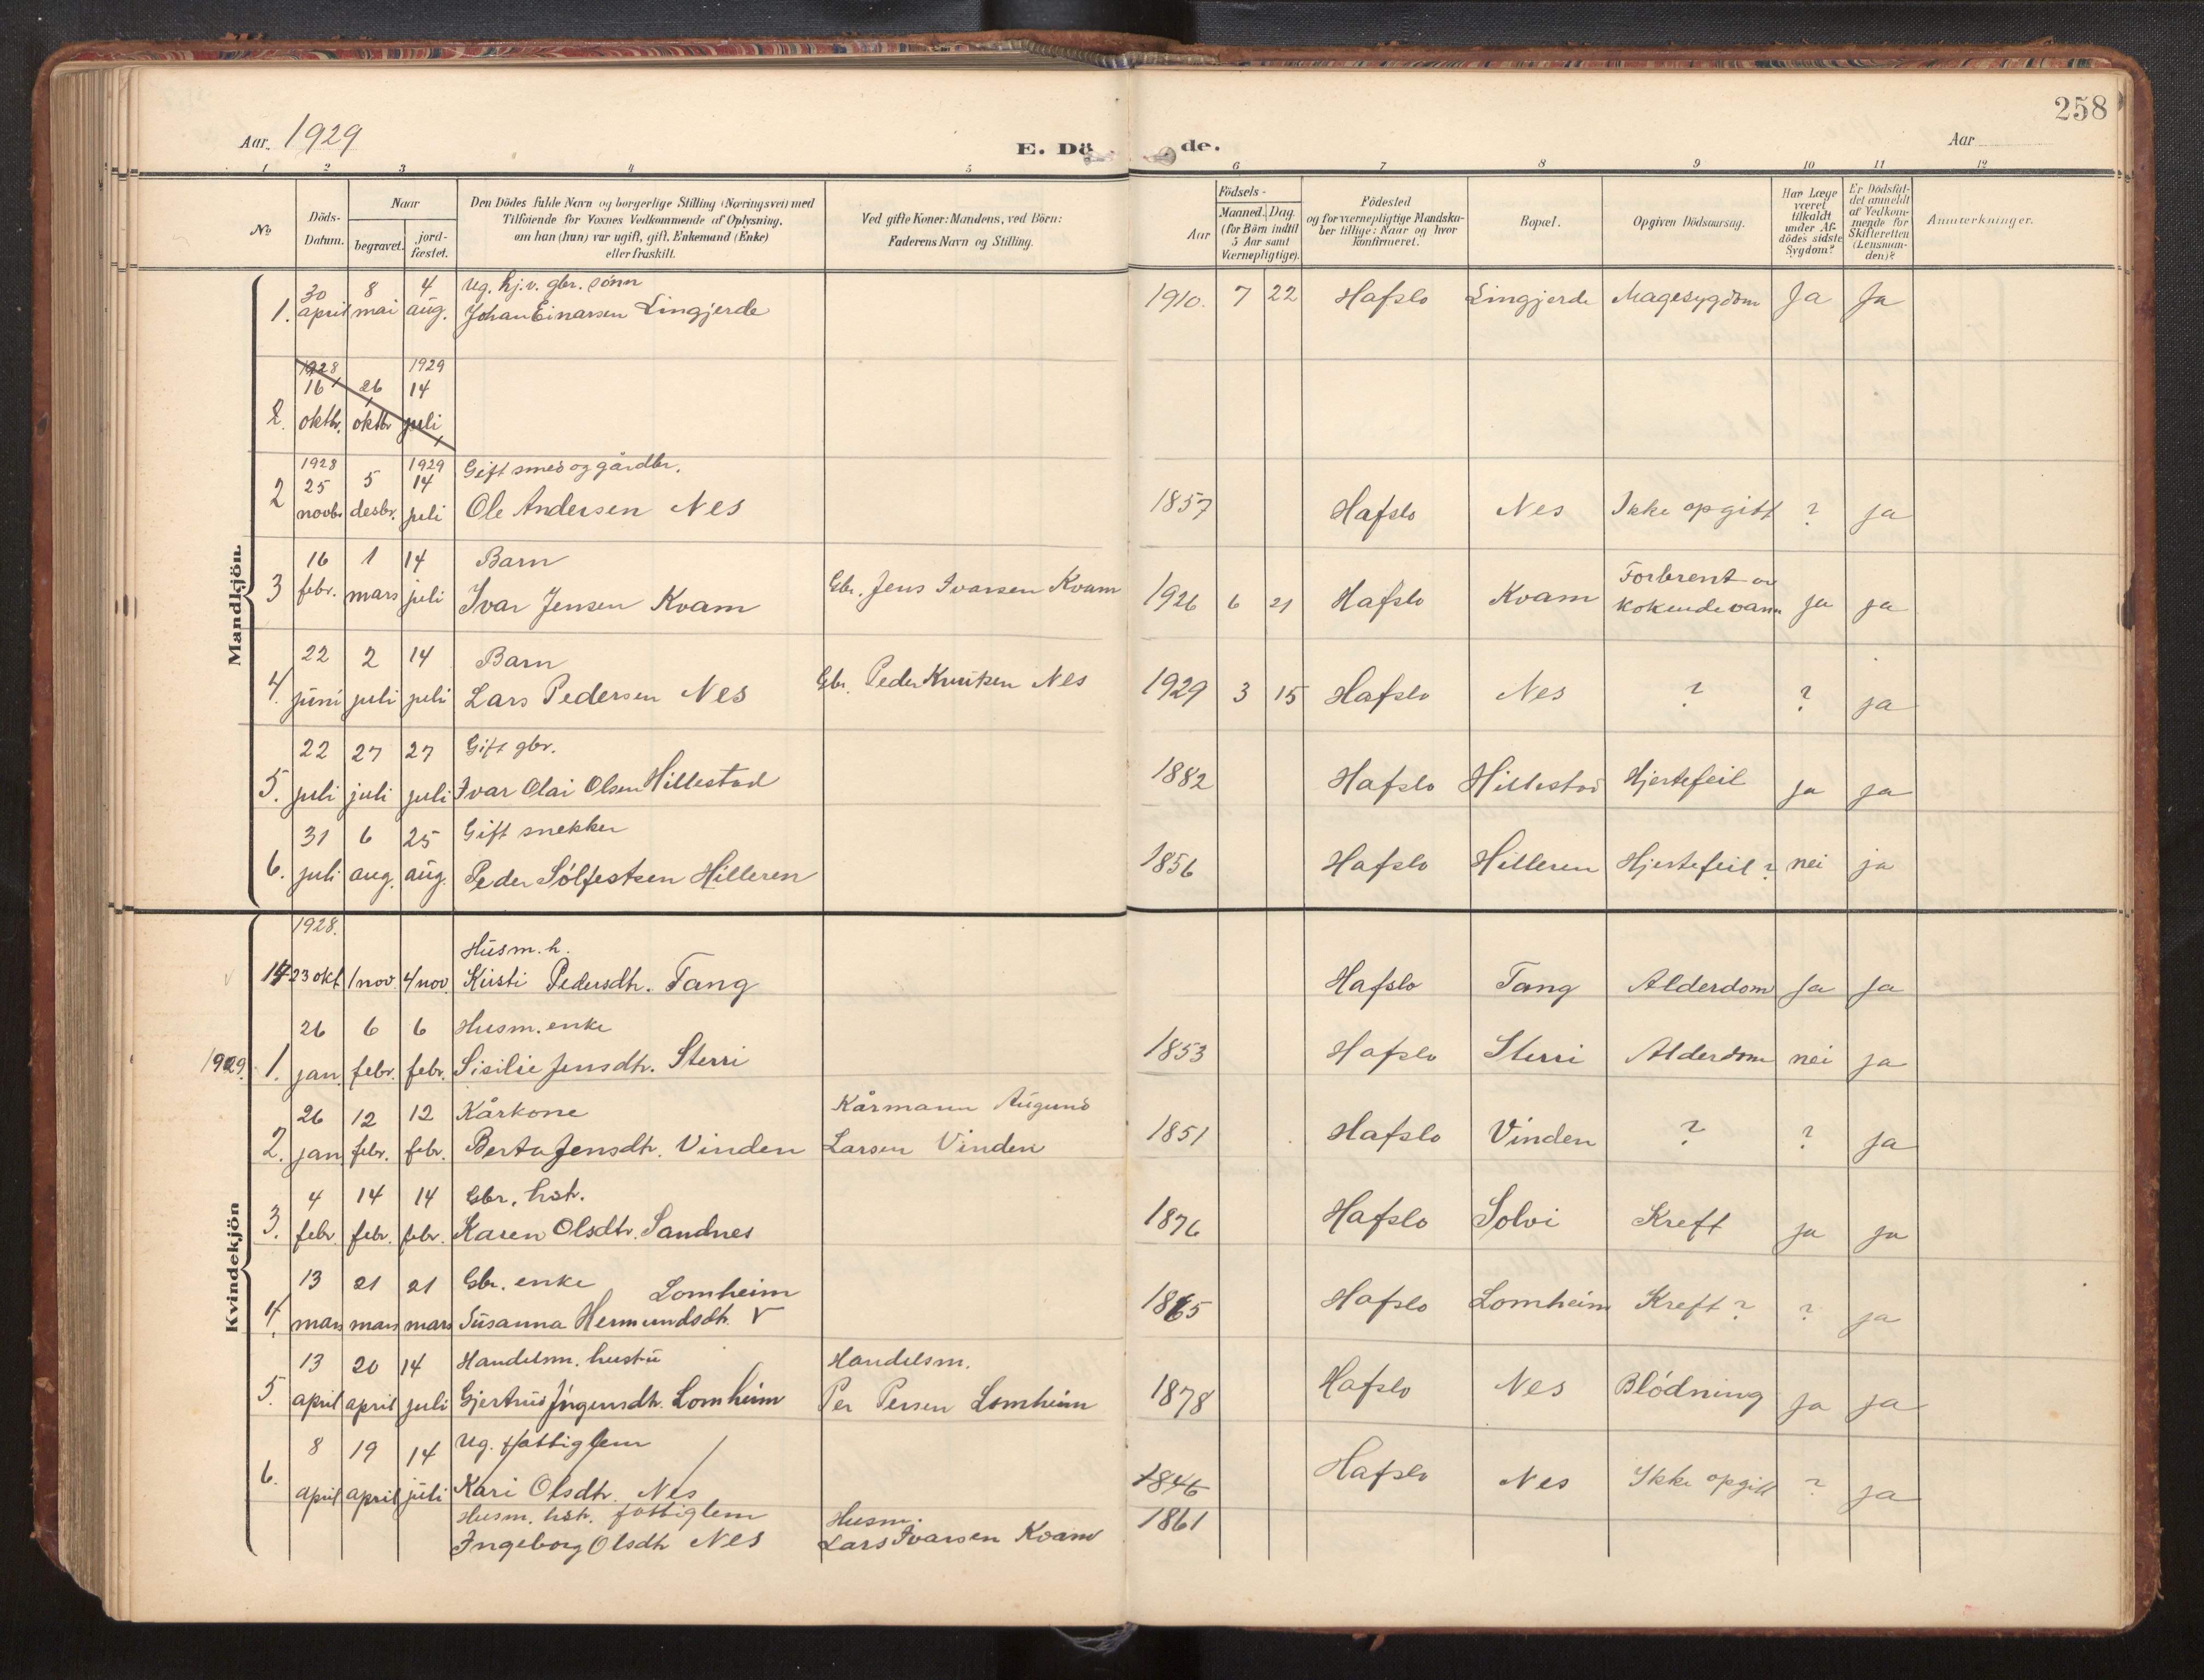 258
Aar. 1929
E. Dö de.
Aar
1 2 3 4 5 6 7 8 9 10 11 12
No
Döds-Datum.
Naar
begravet.
jord-fæstet.
Den Dödes fulde Navn og borgerlige Stilling (Næringsvei) med
Tilföiende for Voxnes Vedkommende af Oplysning,
om han (hun) var ugift, gift, Enkemand (Enke)
eller fraskilt.
Ved gifte Koner: Mandens, ved Börn:
Faderens Navn og Stilling.
Födsels-
Aar
Maaned. Dag.
(for Börn indtil
5 Aar samt
Værnepligtige).
Födested
og for værnepligtige Mandska-
ber tillige: Naar og hvor
konfirmeret.
Bopæl.
Opgiven Dödsaarsag.
Har Læge
været
tilkaldt
under Af-
dödes sidste
Sygdom?
Er Dödsfal-
det anmeldt
af Vedkom-
mende for
Skifteretten
(Lensman-
den)?
Anmærkninger.
Mandkjön.
30 8 4 Ug. hj.v. gbr. sönn
1. april mai aug. Johan Einarsen Lingjerde 1910. 7 22 Hafslo Lingjerde Magesygdom Ja Ja
1928 1929
16 26 14
2. oktbr. oktbr juli
1928 1929 Gift smed og gårdbr.
25 5 14
2 novbr. desbr. juli Ole Andersen Nes 1857 Hafslo Nes Ikke opgitt ? ja
16 1 14 Barn
3 febr. mars juli Ivar Jensen Kvam Gbr. Jens Ivarsen Kvam 1926 6 21 Hafslo Kvam Forbrent av kokende vann ja ja
22 2 14 Barn
4. juni juli juli Lars Pedersen Nes Gbr. Peder Knutsen Nes 1929 3 15 Hafslo Nes ? ? ja
22 27 27 Gift gbr.
5. juli juli juli Ivar Olai Olsen Hillestad 1882 Hafslo Hillestad Hjertefeil ja ja
31 6 25 Gift snekker
6. juli aug. aug. Peder Sölfestsen Hilleren 1856 Hafslo Hilleren Hjertefeil? nei ja
Kvindekjön
1928.
Husm. h.
14 23 okt 1/nov 4/nov. Kirsti Pedersdtr. Tang Hafslo Tang Alderdom Ja Ja
26 6 6 Husm. enke
1929. 1. jan. febr. febr. Sisilie Jensdtr. Sterri 1853 Hafslo Sterri Alderdom nei ja
26 12 12 Kårkone Kårmann Augund
2. jan febr. febr. Berta Jensdtr. Vinden Larsen Vinden 1851 Hafslo Vinden ? ? ja
4 14 14 Gbr. hstr.
3. febr. febr. febr. Karen Olsdtr. Sandnes 1876 Hafslo Solvi Kreft ja ja
13 21 21 Gbr. enke Lomheim
4. mars mars mars Susanna Hermundsdtr. V 1865 Hafslo Lomheim Kreft? ? ja
13 20 14 Handelsm. hustru Handelsm.
5. april april juli Gjertrud Ingensdtr. Lomheim Per Persen Lomheim 1878 Hafslo Nes Blödning ja ja
8 19 14 Ug. fattiglem
6. april april juli Kari Olsdtr. Nes 1846 Hafslo Nes Ikke opgitt ? ja
Husm. hstr. fattiglem Husm. 1861
Ingeborg Olsdtr Nes Lars Ivarsen Kvam